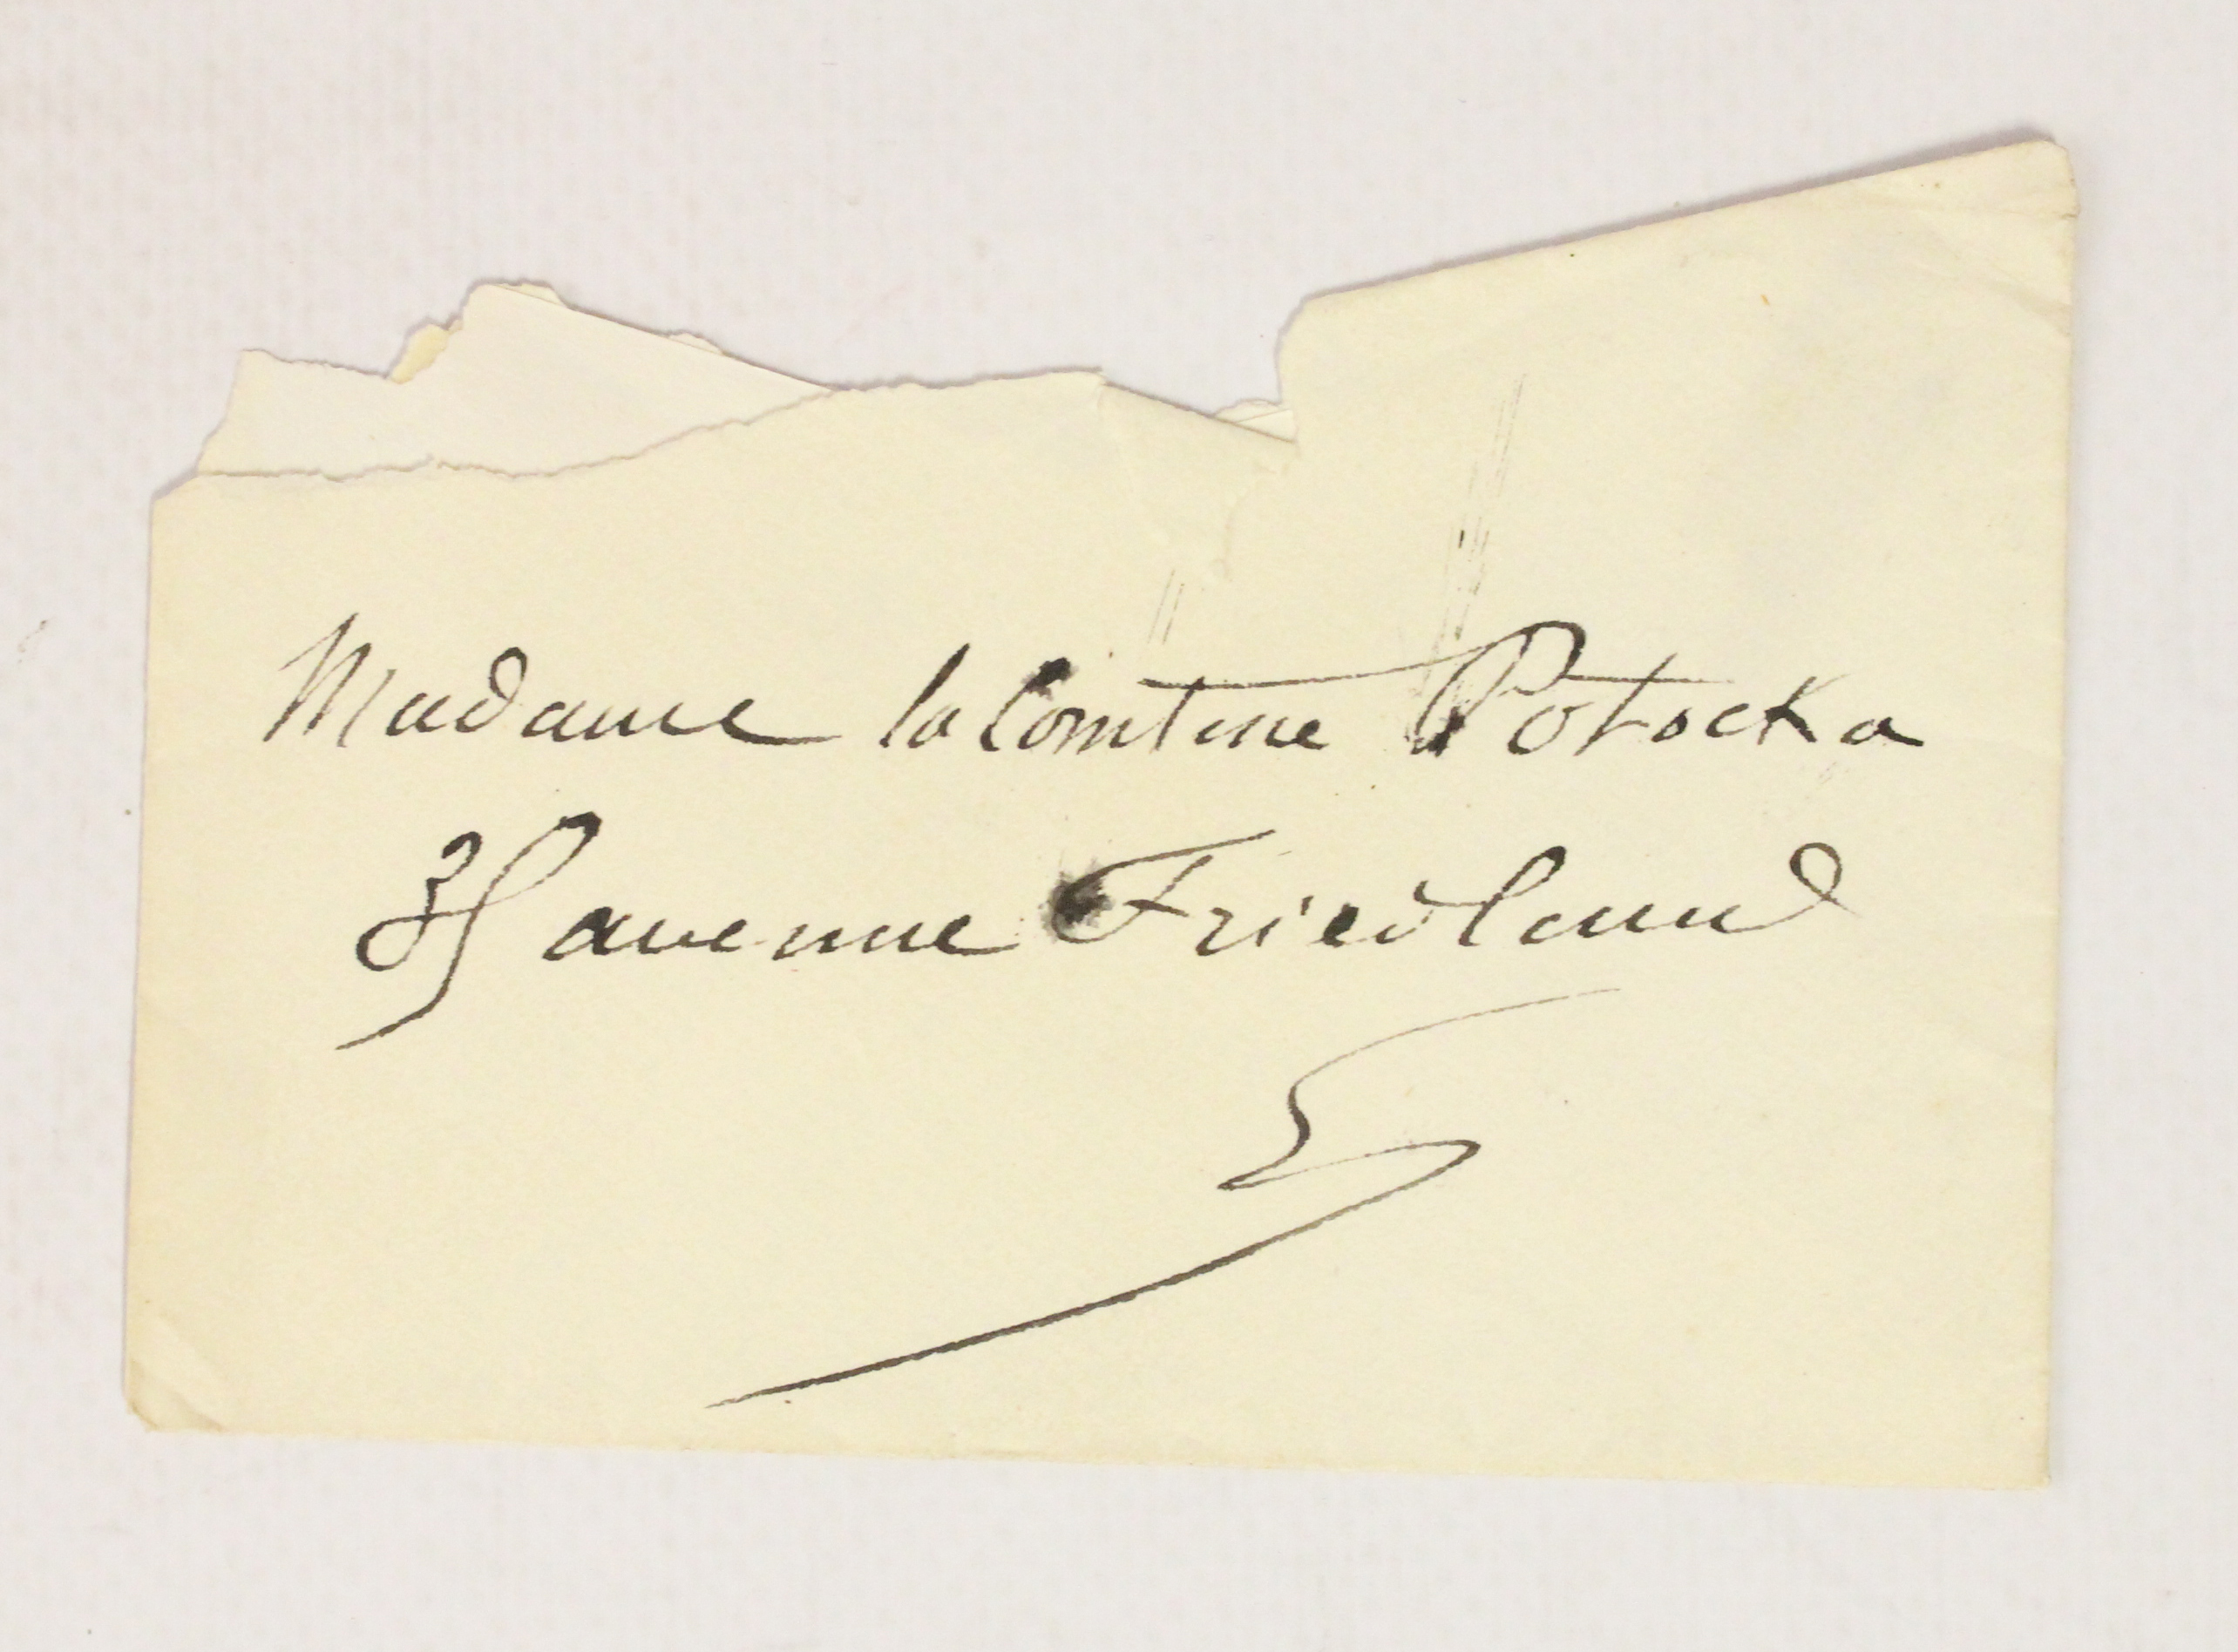 Madame la Comtesse Potocka
35 avenue Friedland